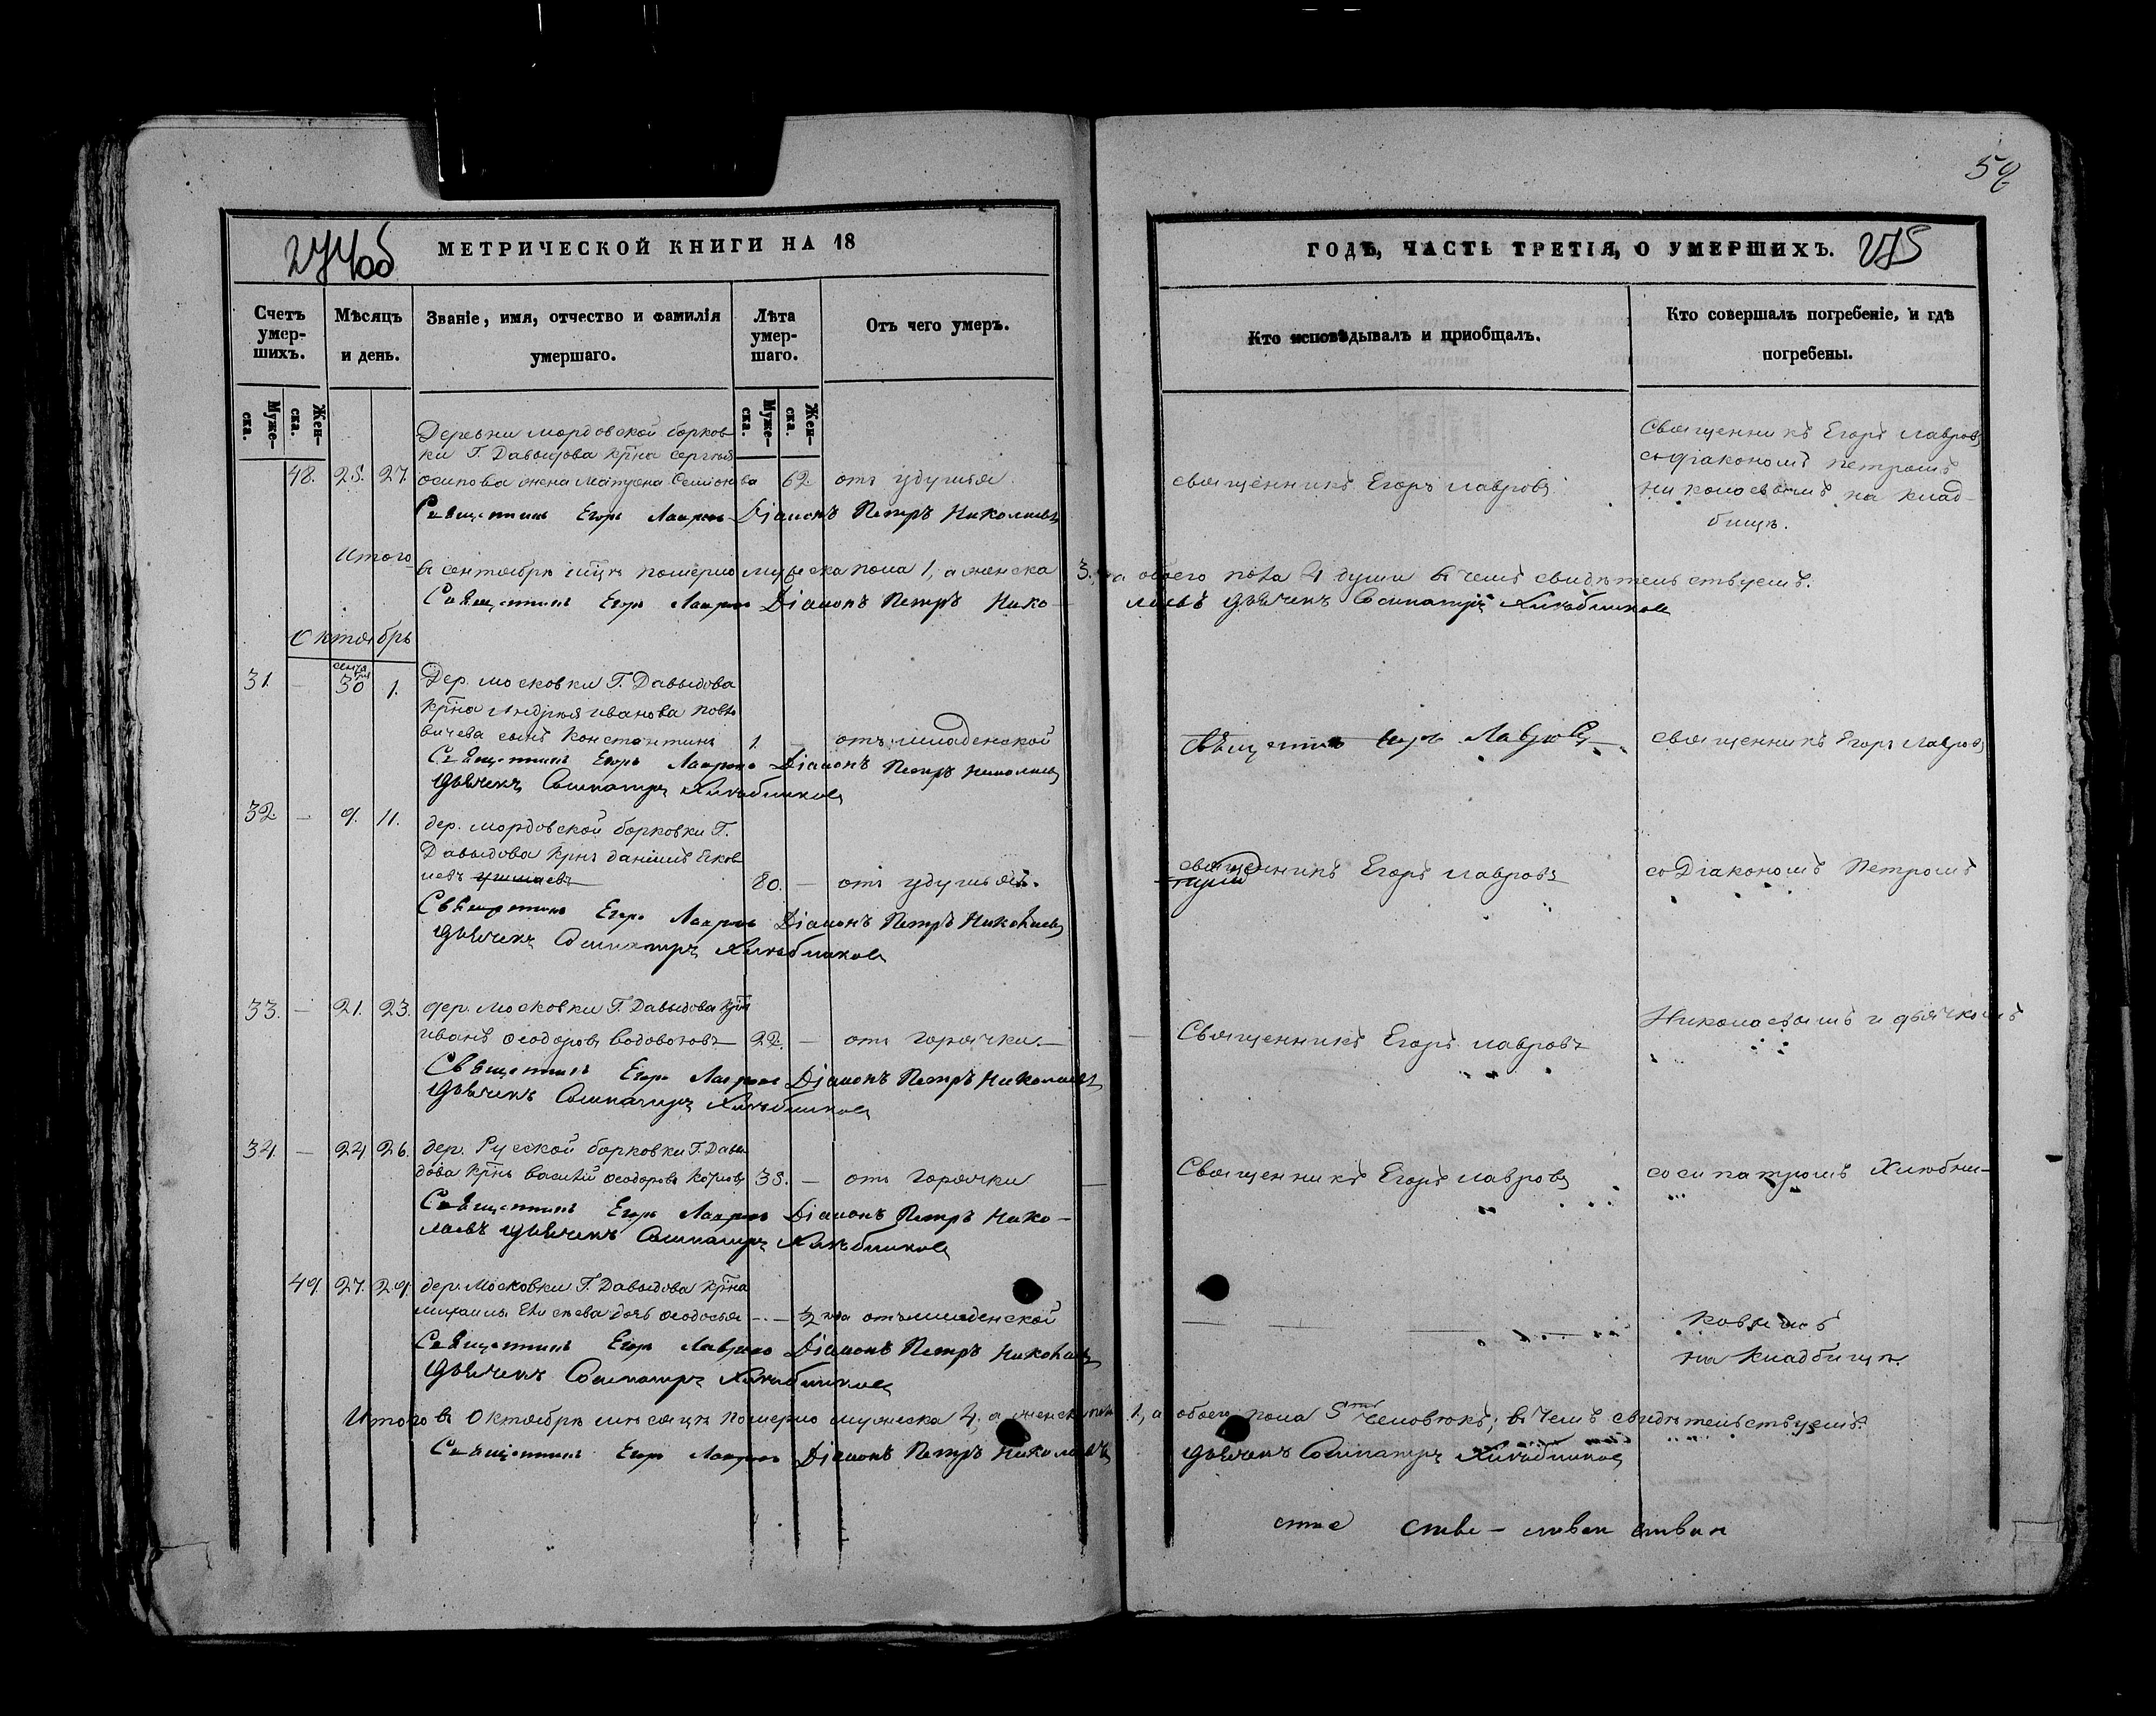 59
274об
МЕТРИЧЕСКОЙ КНИГИ НА 18
ГОДЪ, ЧАСТЬ ТРЕТІЯ, О УМЕРШИХЪ.
275
Счетъ умер-шихъ.
Мѣсяцъ и день.
Званіе, имя, отчество и фамилія умершаго.
Лѣта умер-шаго.
Отъ чего умеръ.
Кто исповѣдывалъ и приобщалъ.
Кто совершалъ погребеніе, и гдѣ погребены.
Муже-ска.
Жен-ска.
Муже-ска.
Жен-ска.
Деревни мордовской борков-
ки Г. Давыдова крна Сергѣя
48. 25. 27. осипова жена Матрена Семіонова 62. отъ удушья
священникъ Егоръ Лавровъ
Священникъ Егоръ Лавровъ
съ діакономъ петромъ
николаевымъ на клад-
бищѣ.
Священникъ Егоръ Лавровъ Діаконъ Петръ Николаевъ
Итого въ сентябрѣ мцѣ померло мужеска пола 1, а женска 3. а обоего пола 4 души въ чемъ свидѣтельствуемъ.
Священникъ Егоръ Лавровъ Діаконъ Петръ Нико-
лаевъ дьячекъ Сосипатръ Хлѣбниковъ
Октябрь
31. — сентя 30 1. Дер. московки Г. Давыдова
крна Андрея иванова
сынъ Константинъ 1. — отъ младенской
Священникъ Егоръ Лавровъ
священникъ Егоръ Лавровъ
Священникъ Егоръ Лавровъ Діаконъ Петръ Николаевъ
дьячекъ Сосипатръ Хлѣбниковъ
32. — 9. 11. дер. мордовской борковки Г.
Давыдова крнъ данiилъ
80. — отъ удушья.
священникъ Егоръ Лавровъ
со Діакономъ Петромъ
Священникъ Егоръ Лавровъ Діаконъ Петръ Николаевъ
дьячекъ Сосипатръ Хлѣбниковъ
33. — 21. 23. дер. московки Г. Давыдова крнъ
иванъ Ѳеодоровъ водовозовъ 22. — отъ горячки.
Священникъ Егоръ Лавровъ
Николаевымъ и дьячкомъ
Священникъ Егоръ Лавровъ Діаконъ Петръ Николаевъ
дьячекъ Сосипатръ Хлѣбниковъ
34. — 24 26. дер. Русской борковки Г. Давы
дова крнъ василій ѳеодоровъ 35. — отъ горячки
Священникъ Егоръ Лавровъ
сосипатромъ Хлѣбни-
Священникъ Егоръ Лавровъ Діаконъ Петръ Нико-
лаевъ дьячекъ Сосипатръ Хлѣбниковъ
49. 27. 29. дер. Московки Г. Давыдова крна
михаила дочь Ѳеодосья — отъ младенской
ковымъ
на кладбищѣ.
Священникъ Егоръ Лавровъ Діаконъ Петръ Николаевъ
дьячекъ Сосипатръ Хлѣбниковъ
Итого въ Октябрѣ мѣсяцѣ померло мужеска 4, а женска пола 1, а обоего пола 5ть человѣкъ; въ чемъ свидѣтельствуемъ.
Священникъ Егоръ Лавровъ Діаконъ Петръ Николаевъ
дьячекъ Сосипатръ Хлѣбниковъ